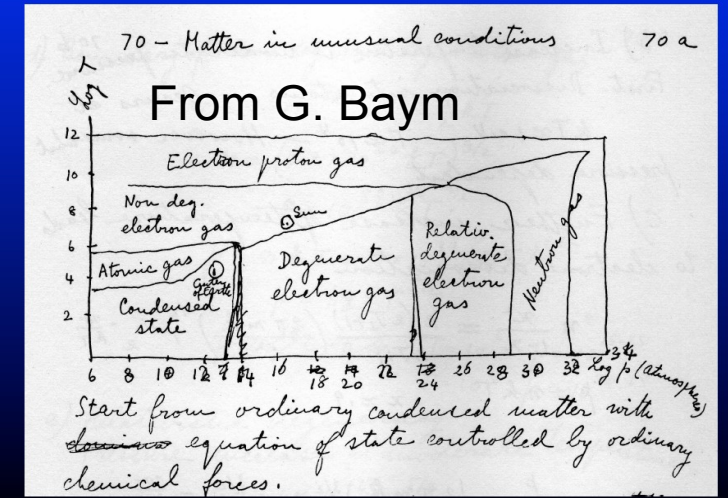 70 – Matter in unusual conditions 70 a
Log T
From G. Baym
12
Electron proton gas
10
Non deg.
electron gas
8
Sun
6
Atomic gas
4
Center
of Earth
Condensed
state
2
Degenerate
electron gas
Relativ.
degenerate
electron
gas
Neutron gas
6 8 10 12 14 16 18 20 22 24 26 28 30 32 34
Log p (atmospheres)
Start from ordinary condensed matter with
equation of state controlled by ordinary
chemical forces.